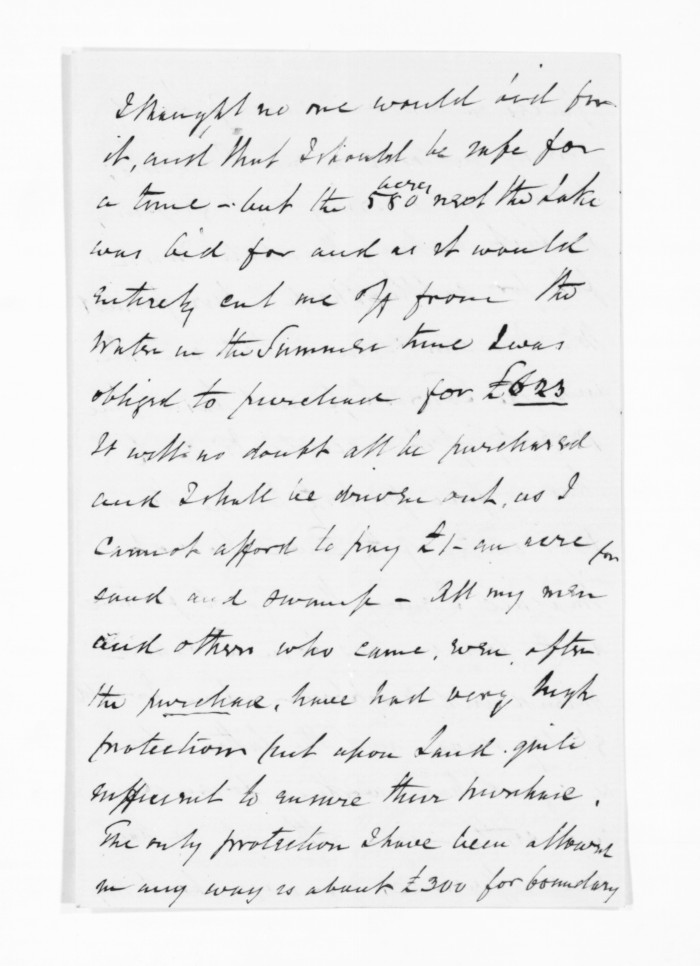 I thought no one would bid for
it, and that I should be safe for
a time – but the 580 acres next the Lake
was bid for and as it would
entirely cut me off from the
Water in the Summer time I was
obliged to purchase for £623
It will no doubt all be purchased
and I shall be driven out, as I
cannot afford to pay £1– an acre for
sand and swamp – All my men
and others who came, even, after
the purchase, have had very high
protection put upon Land quite
sufficient to ensure their purchase.
The only protection I have been allowed
in any way is about £300 for boundary